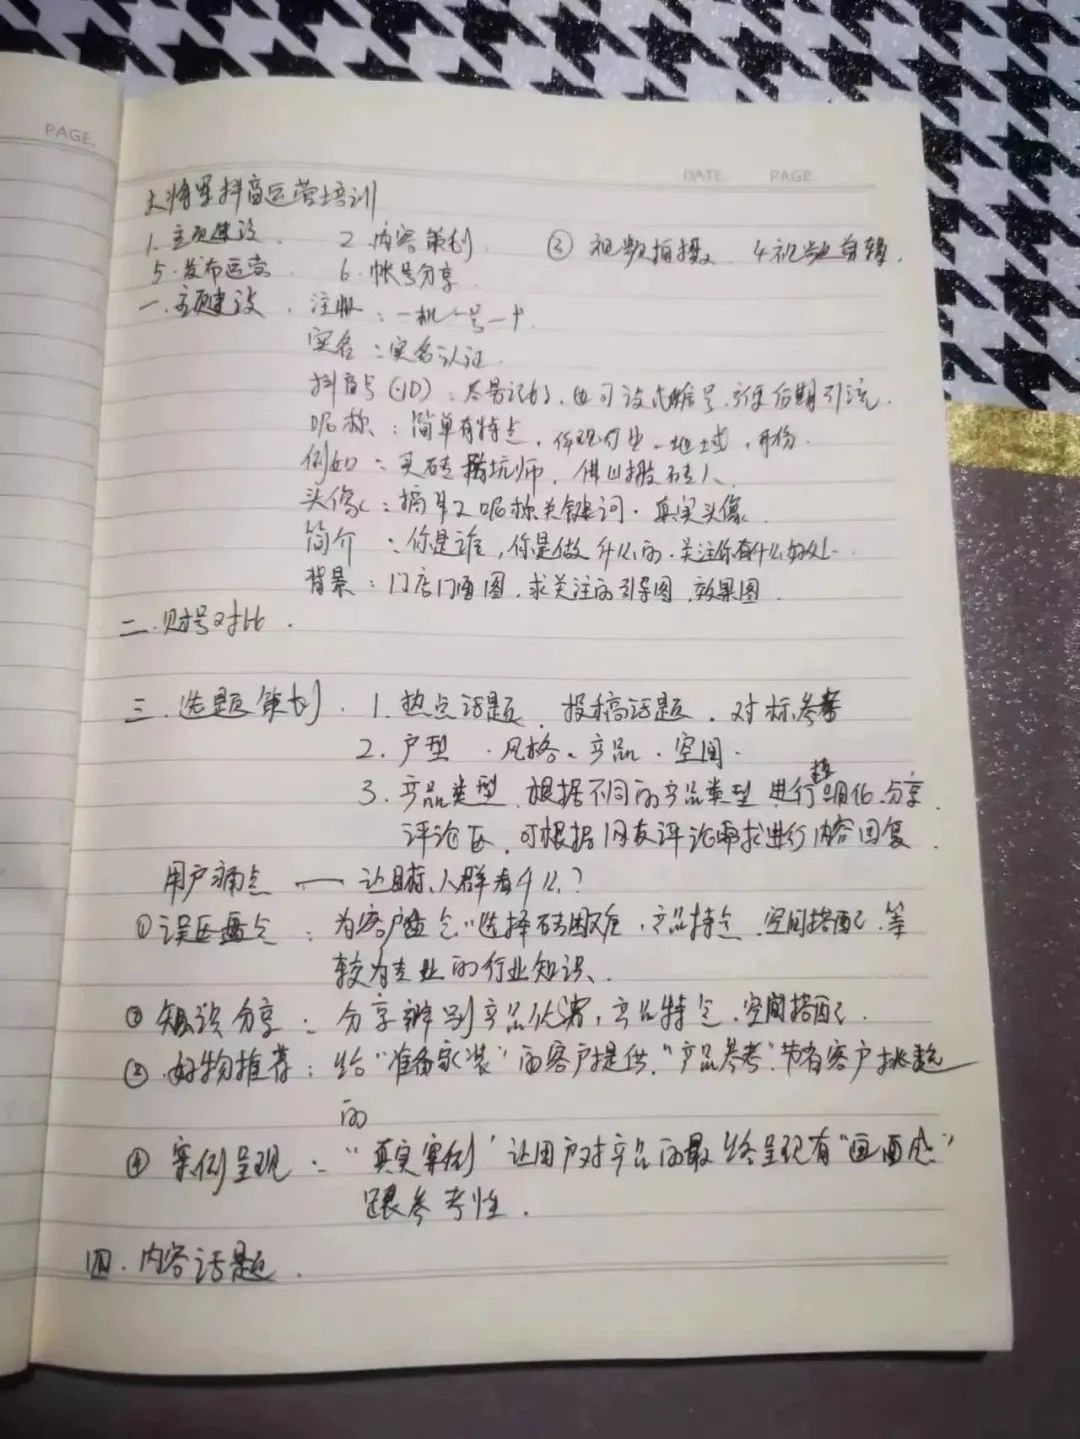 PAGE.
DATE PAGE.
大将军抖音运营培训
1.主页建设. 2.内容策划. ③ 视频拍摄. 4.视频剪辑.
5.发布运营. 6.帐号分享.
一.主页建设. 注册:一机一号一卡.
实名:实名认证.
抖音号(ID):尽易记好,也可设微信号.方便后期引流.
昵称:简单有特点,体现行业.地域,身份.
例如:买砖避坑师,佛山搬砖人.
头像:昵称关键词.真实头像.
简介:你是谁,你是做什么的.关注你有什么好处.
背景:门店门面图.求关注的引导图.效果图.
二.财号对比.
三.选题策划. 1.热点话题.投稿话题.对标参考
2.户型.风格.产品.空间.
3.产品类型.根据不同的产品类型进行化分享.
评论区.可根据网友评论需求进行内容回复.
用户痛点——让目标人群看什么?
①误区盘点:为客户盘点"选择砖困难.产品特点.空间搭配.等
较为专业的行业知识.
③知识分享:分享辨别产品优劣,产品特点.空间搭配.
②好物推荐:给"准备家装"的客户提供."产品参考"节省客户挑选
的
④案例呈现:"真实案例"让用户对产品的最终呈现有"画面感"
跟参考性.
四.内容话题.